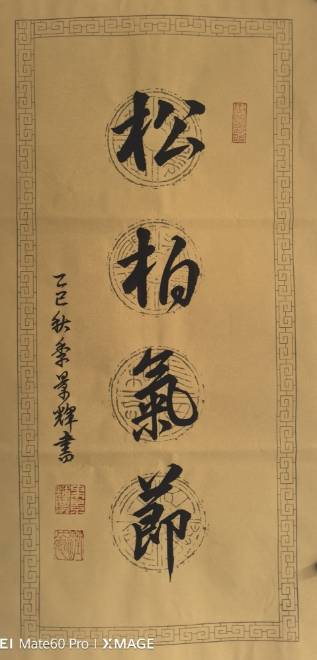 松柏氣節
乙巳秋季景輝書
EI Mate60 Pro | XMAGE